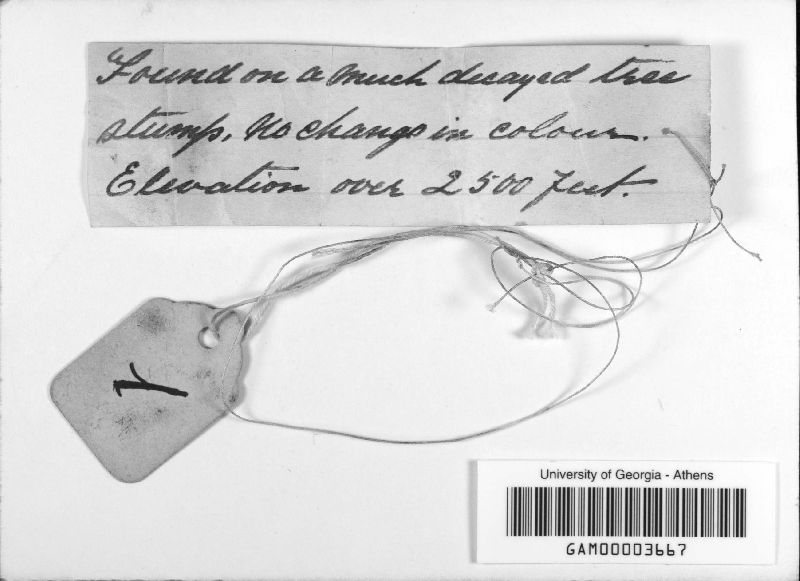 Found on a much decayed tree
stump. No change in colour.
Elevation over 2500 feet.
University of Georgia - Athens
GAM00003667